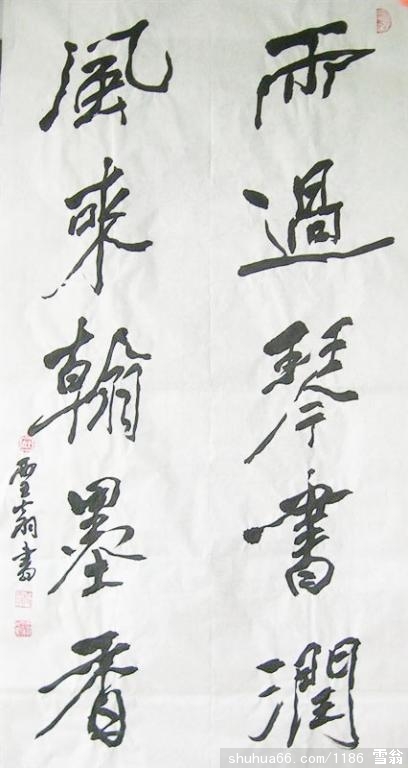 雨過琴書潤
風來翰墨香
雪翁書
shuhua66.com/1186 雪翁